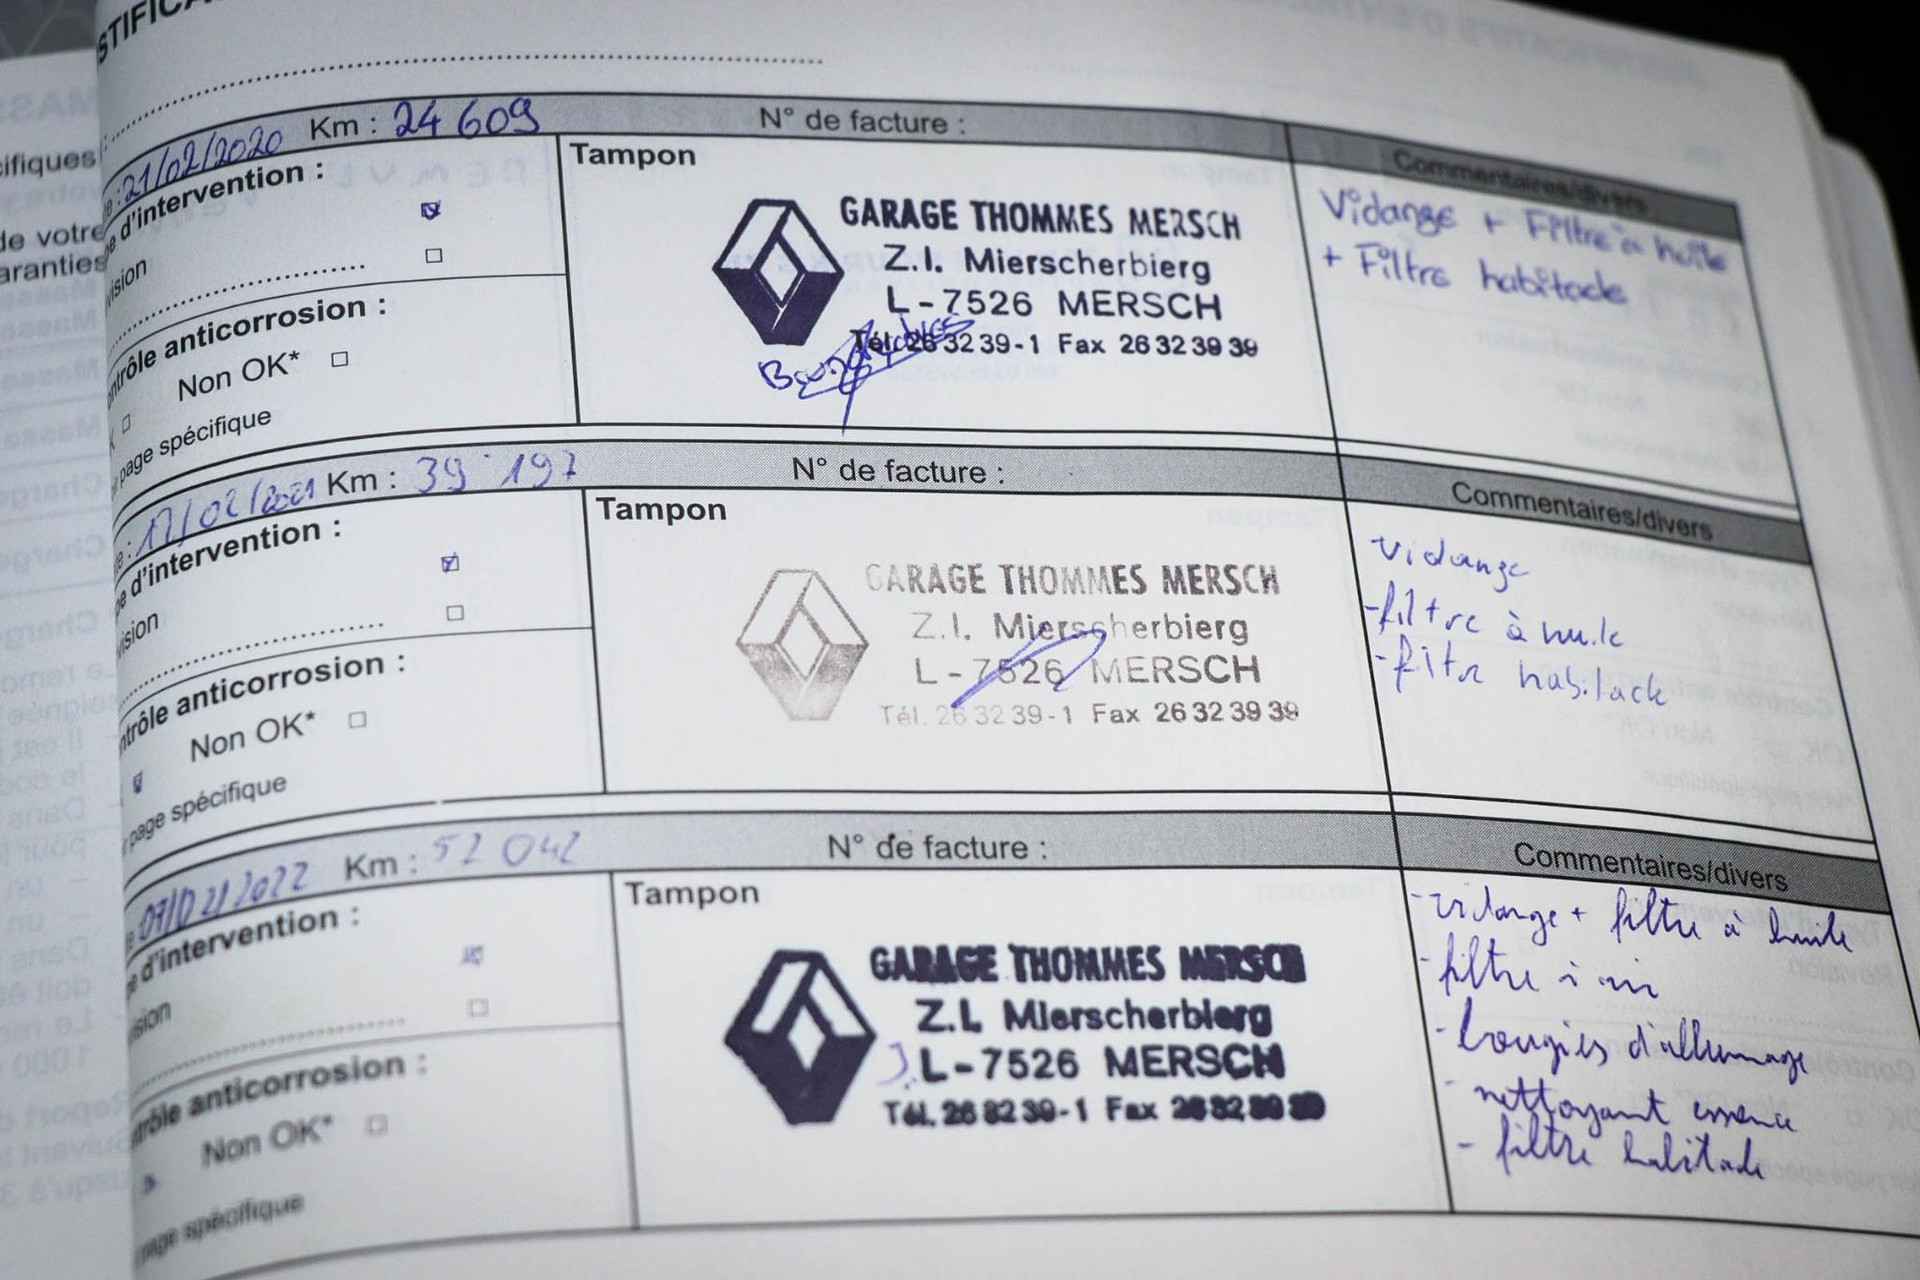 STIFICA
: 21/02/2020 Km : 24 609 N° de facture :
d'intervention :
Tampon
Commentaires/divers
GARAGE THOMMES MERSCH
Z.I. Mierscherbierg
L-7526 MERSCH
Tél. 26 32 39-1 Fax 26 32 39 39
Vidange + Filtre à huile
+ Filtre habitacle
vision
ntrôle anticorrosion :
Non OK*
page spécifique
: 17/02/2021 Km : 39 197 N° de facture :
d'intervention :
Tampon
Commentaires/divers
GARAGE THOMMES MERSCH
Z.I. Mierscherbierg
L-7526 MERSCH
Tél. 26 32 39-1 Fax 26 32 39 39
vidange
-filtre à huile
-filtr habitacle
vision
ntrôle anticorrosion :
Non OK*
page spécifique
07/02/2022 Km : 52 042 N° de facture :
d'intervention :
Tampon
Commentaires/divers
GARAGE THOMMES MERSCH
Z.I. Mierscherbierg
L-7526 MERSCH
Tél. 26 32 39-1 Fax 26 32 39 39
- vidange + filtre à huile
- filtre à air
- bougies d'allumage
- nettoyant essence
- filtre habitacle
sion
trôle anticorrosion :
Non OK*
page spécifique
ifiques
de votre
aranties